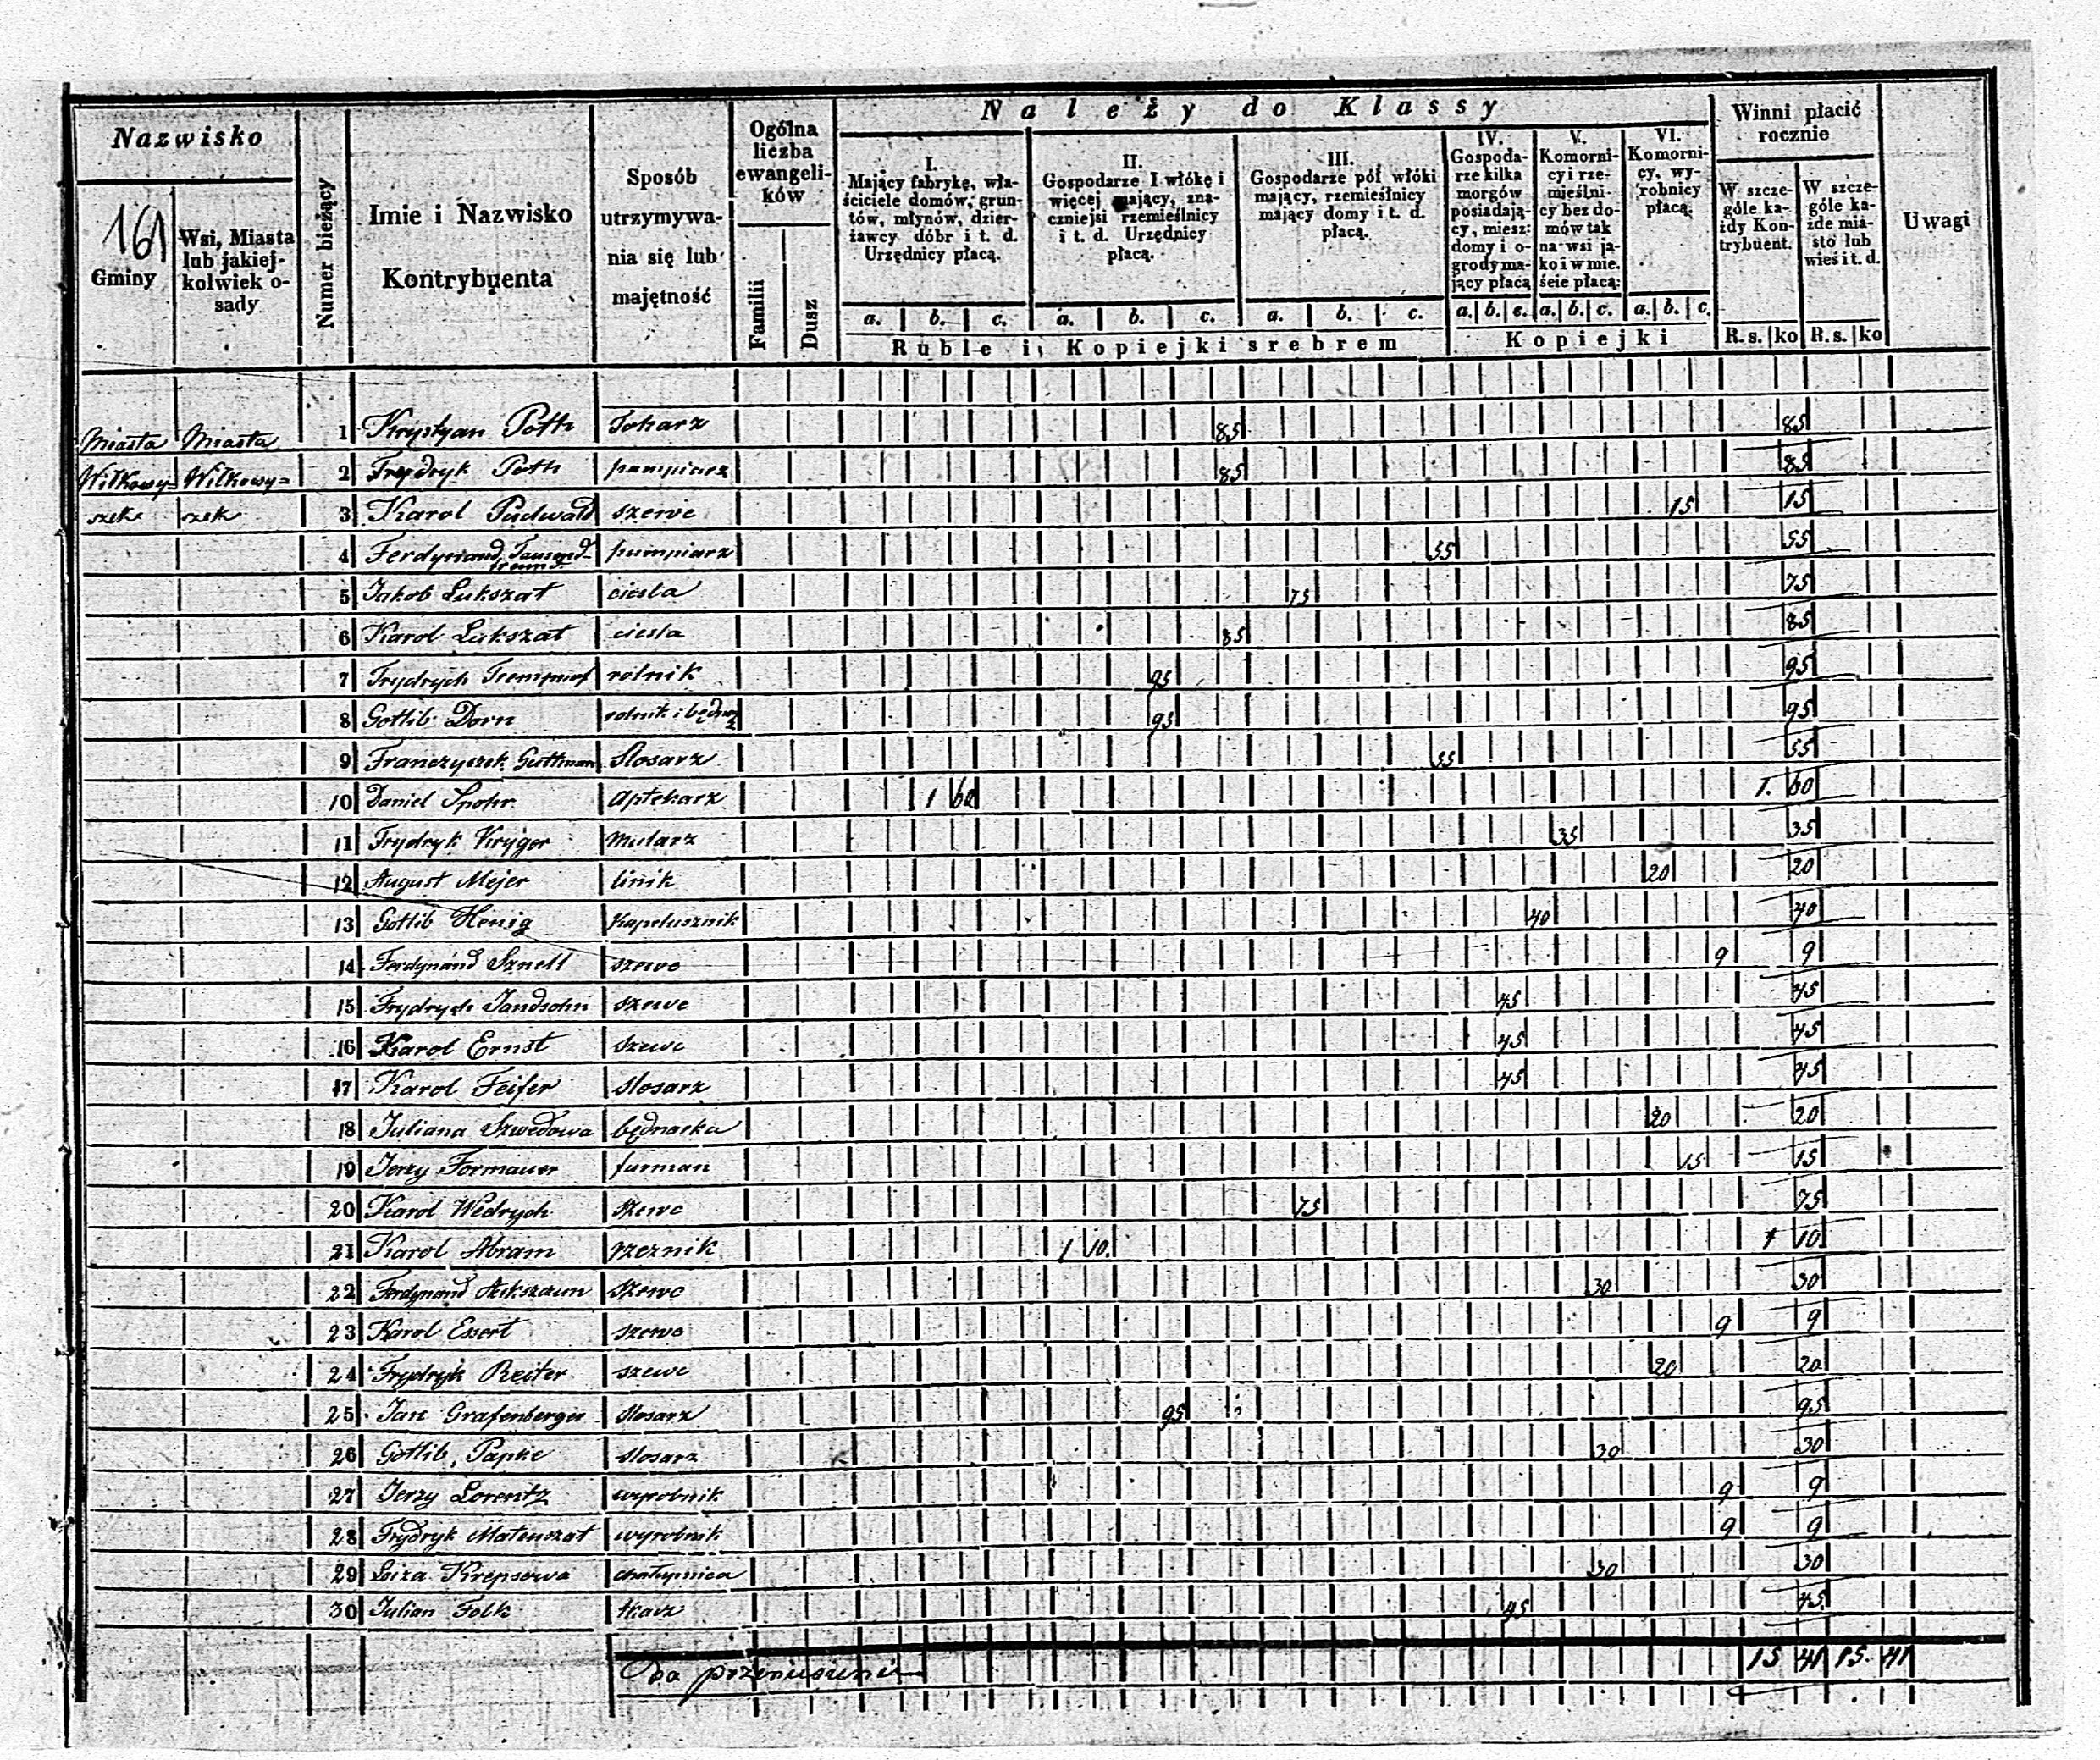 Należy do Klassy
Nazwisko
161
Gminy
Wsi, Miasta lub jakiej-kolwiek o-sady
Numer bieżący
Imie i Nazwisko Kontrybuenta
Sposób utrzymywa-nia się lub majętność
Ogólna liczba ewangeli-ków
Familii
Dusz
I. Mający fabrykę, wła-ściciele domów, grun-tów, młynów, dzier-żawcy dóbr i t. d. Urzędnicy płacą.
II. Gospodarze I włókę i więcej mający, zna-czniejsi rzemieślnicy i t. d. Urzędnicy płacą.
III. Gospodarze pół włóki mający, rzemieślnicy mający domy i t. d. płacą.
IV. Gospoda-rze kilka morgów posiadają-cy, miesz: domy i o-grody ma-jący płacą
V. Komorni-cy i rze-mieślni-cy bez do-mów tak na wsi ja-ko i w mie. ście płacą:
VI. Komorni-cy, wy-robnicy płacą.
Winni płacić rocznie
W szcze-góle ka-żdy Kon-trybuent.
W szcze-góle ka-żde mia-sto lub wieś i t. d.
Uwagi
a. b. c. a. b. c. a. b. c. a. b. c. a. b. c. a. b. c.
Ruble i Kopiejki srebrem
Kopiejki
R. s. ko R. s. ko
Miasta Miasta 1 Krystyan Poth Tokarz 85 85
Wiłkowy= Wiłkowy= 2 Frydryk Poth pampiarz 85 85
szek szek 3 Karol Pudwald szewc 15 15
4 Ferdynand Tausend-freund pumpiarz 55 55
5 Jakob Lukszat ciesla 75 75
6 Karol Lukszat ciesla 85 85
7 Frydrych rolnik 95 95
8 Gotlib Dorn rolnik i będnarz 95 95
9 Franczyszek Guttman Slosarz 55 55
10 Daniel Spohr Aptekarz 1 60 1. 60
11 Frydryk Kryger mularz 35 35
12 August Mejer linik 20 20
13 Gotlib Henig Kapelusznik 40 40
14 Ferdynand Sznell szewc 9 9
15 Frydrych Jandsohn szewc 45 45
16 Karol Ernst szewc 45 45
17 Karol Feifer slosarz 45 45
18 Juliana Szwedowa będnarka 20 20
19 Jerzy Formauer furman 15 15
20 Karol Wedrych szewc 75 75
21 Karol Abram rzeznik 1 10. 1 10
22 Ferdynand szewc 30 30
23 Karol Essert szewc 9 9
24 Frydryk Reiter szewc 20 20
25 Jan Grafenberger slosarz 95 95
26 Gotlib Papke slosarz 30 30
27 Jerzy Lorentz wyrobnik 9 9
28 Frydryk Mateuszat wyrobnik 9 9
29 Loiza Krepsowa chałupnica 30 30
30 Julian Folk tkacz 45 45
Do przeniesienia 15 41 15. 41